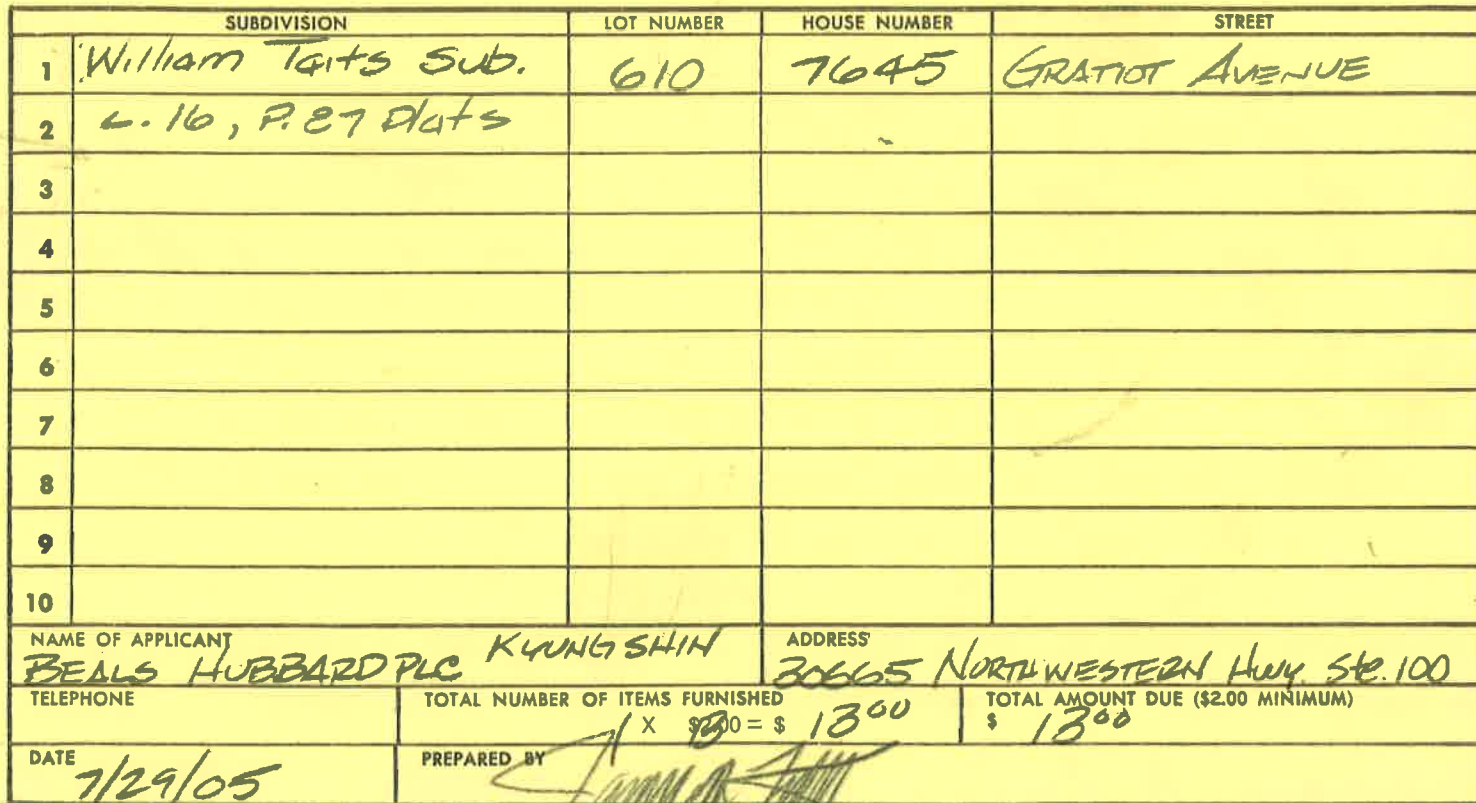 SUBDIVISION LOT NUMBER HOUSE NUMBER STREET
1 William Taits Sub. 610 7645 GRATIOT AVENUE
2 L. 16, P. 87 Plats
3
4
5
6
7
8
9
10
NAME OF APPLICANT ADDRESS
BEALS HUBBARD PLC KYUNG SHIN 30665 NORTHWESTERN HWY. Ste. 100
TELEPHONE TOTAL NUMBER OF ITEMS FURNISHED TOTAL AMOUNT DUE ($2.00 MINIMUM)
1 X = $ 13.00 $ 13.00
DATE PREPARED BY
7/29/05